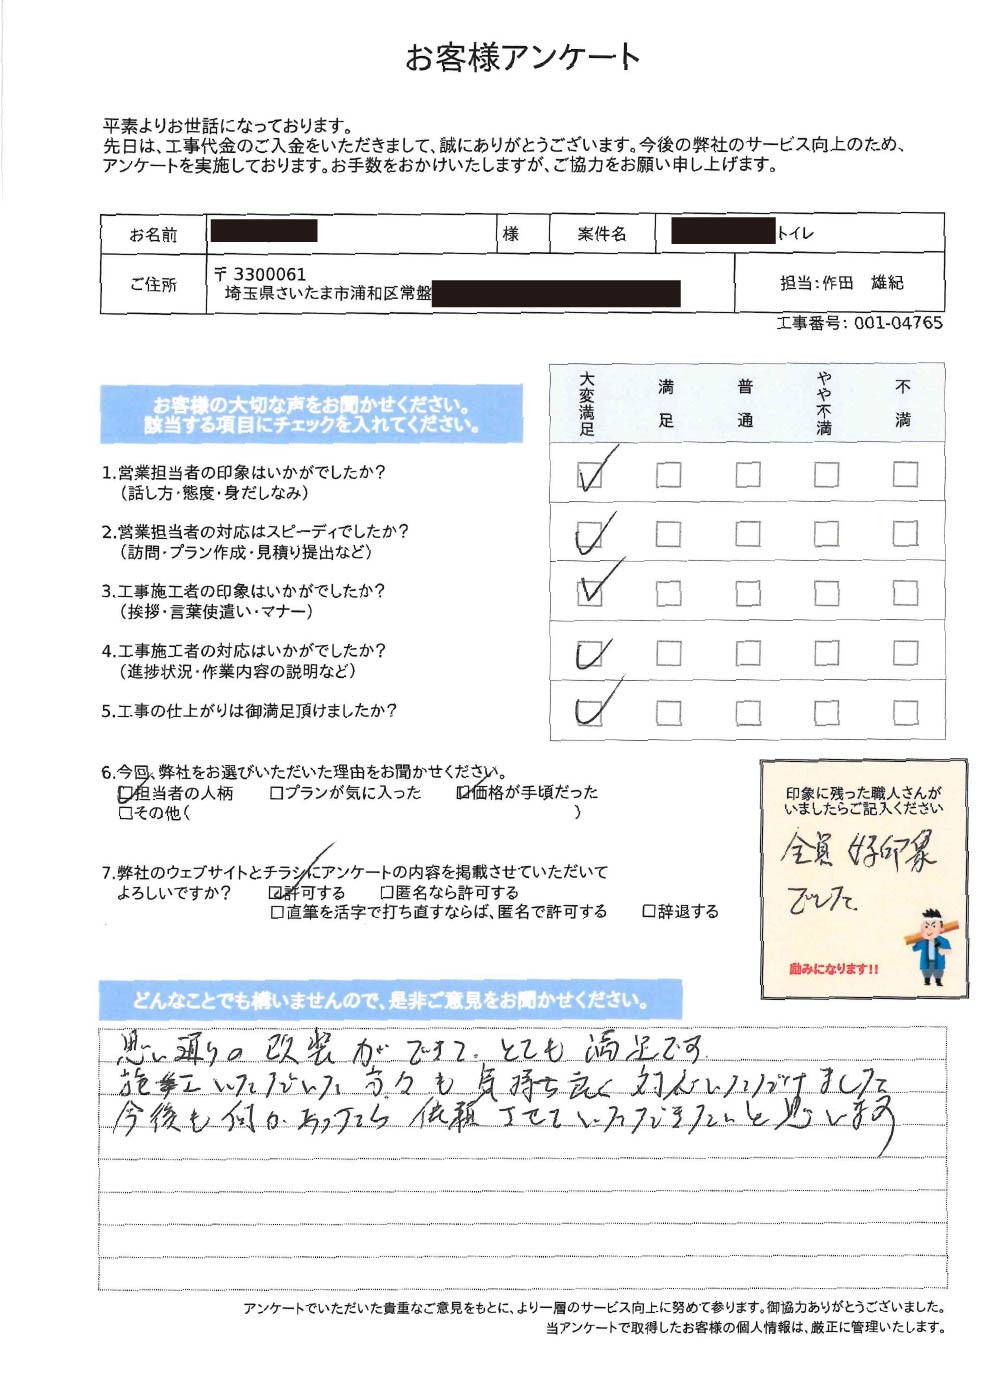 お客様アンケート
平素よりお世話になっております。
先日は、工事代金のご入金をいただきまして、誠にありがとうございます。今後の弊社のサービス向上のため、
アンケートを実施しております。お手数をおかけいたしますが、ご協力をお願い申し上げます。
お名前 様 案件名 トイレ
ご住所 〒3300061
埼玉県さいたま市浦和区常盤
担当:作田 雄紀
工事番号: 001-04765
お客様の大切な声をお聞かせください。
該当する項目にチェックを入れてください。
大変満足 満足 普通 やや不満 不満
1.営業担当者の印象はいかがでしたか?
(話し方・態度・身だしなみ)
2.営業担当者の対応はスピーディでしたか?
(訪問・プラン作成・見積り提出など)
3.工事施工者の印象はいかがでしたか?
(挨拶・言葉使遣い・マナー)
4.工事施工者の対応はいかがでしたか?
(進捗状況・作業内容の説明など)
5.工事の仕上がりは御満足頂けましたか?
6.今回、弊社をお選びいただいた理由をお聞かせください。
☑担当者の人柄 □プランが気に入った ☑価格が手頃だった
□その他( )
7.弊社のウェブサイトとチラシにアンケートの内容を掲載させていただいて
よろしいですか? ☑許可する □匿名なら許可する
□直筆を活字で打ち直すならば、匿名で許可する □辞退する
印象に残った職人さんが
いましたらご記入ください
全員 好印象
でした。
励みになります!!
どんなことでも構いませんので、是非ご意見をお聞かせください。
思い通りの改装ができて、とても満足です
施工いただいた方々も気持ち良く対応いただけました
今後も何かあったら依頼させていただきたいと思います
アンケートでいただいた貴重なご意見をもとに、より一層のサービス向上に努めて参ります。御協力ありがとうございました。
当アンケートで取得したお客様の個人情報は、厳正に管理いたします。